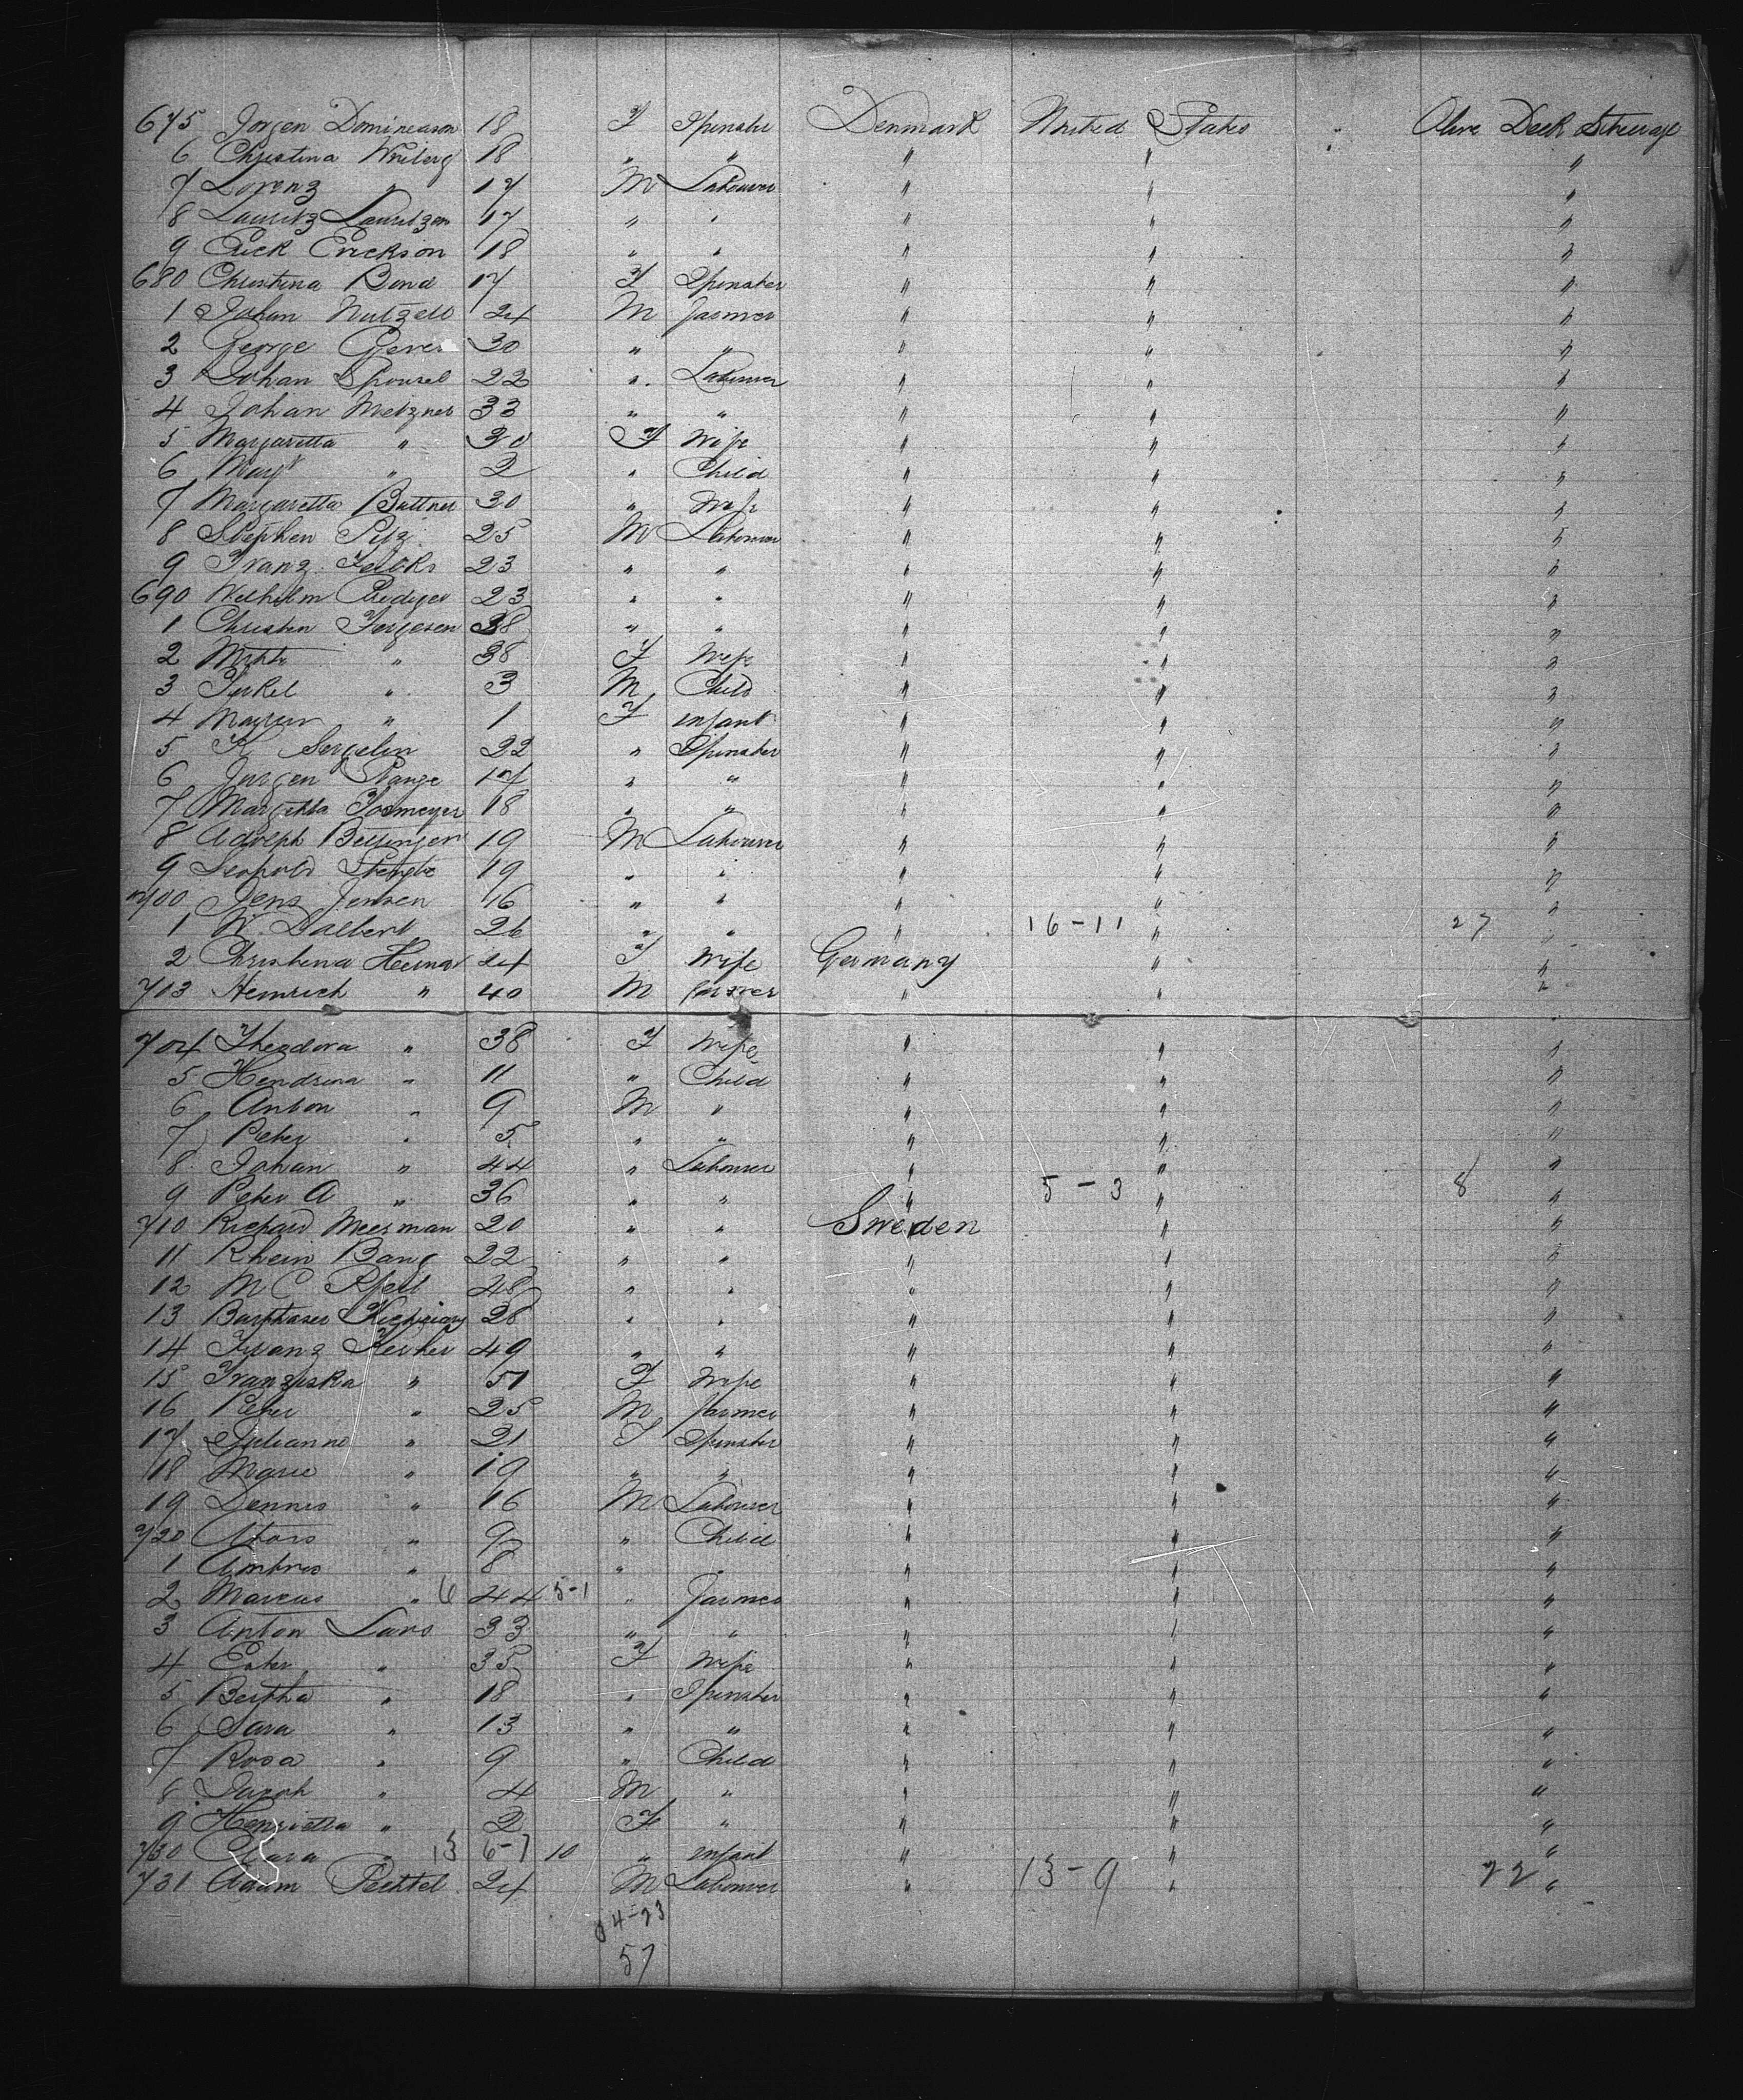 675 Jorgen Domineason 18 F Spinster Denmark United States Olive Deck Steerage
6 Christina Wriberg 18 " " " " "
7 Lorenz " 17 M Labourer " " "
8 Lauritz Lauritzen 17 " " " " "
9 Erick Erickson 18 " " " " "
680 Christina Bend 17 F Spinster " " "
1 Johan Nutzell 24 M Farmer " " "
2 George 30 " " " " "
3 Johan 22 " Labourer " " "
4 Johan Metzner 33 " " " " "
5 Margaretta " 30 F Wife " " "
6 Mary " 2 " Child " " "
7 Margaretta Buttner 30 " Wife " " "
8 Stephen 25 M Labourer " " "
9 Franz 23 " " " " "
690 Wilhelm 23 " " " " "
1 Christen Jorgesen 38 " " " " "
2 " 38 F Wife " " "
3 " 3 M Child " " "
4 " 1 F infant " " "
5 K Sergelin 22 " Spinster " " "
6 Jurgen Stange 17 " " " " "
7 Margetta 18 " " " " "
8 Adolph 19 M Labourer " " "
9 Leopold 19 " " " " "
700 Jens Jensen 16 " " " " "
1 W. Dalbert 26 " " " 16-11 " 27 "
2 Christina 24 F Wife Germany " "
703 Heinrich " 40 M farmer " " "
704 Theodora " 38 F Wife " " "
5 Hendrina " 11 " Child " " "
6 Anton " 9 M " " " "
7 Peter " 5 " " " " "
8 Johan " 44 " Labourer " " "
9 Peter A " 36 " " " 5-3 " 8 "
710 Richard Meesman 20 " " Sweden " "
11 Rhein Bang 22 " " " " "
12 M C 48 " " " " "
13 28 " " " " "
14 Franz Kerker 49 " " " " "
15 Franziska " 51 F Wife " " "
16 Peter " 25 M Farmer " " "
17 Julianne " 21 F Spinster " " "
18 Marie " 19 " " " " "
19 Dennis " 16 M Labourer " " "
720 " 9 " Child " " "
1 " 8 " " " " "
2 Marcus " 6 44 5-1 " Farmer " " "
3 Anton Lars 33 " " " " "
4 Ester " 35 F Wife " " "
5 Bertha " 18 " Spinster " " "
6 Sara " 13 " " " " "
7 Rosa " 9 " Child " " "
8 " 4 M " " " "
9 Henrietta " 2 F " " " "
730 Clara " 13 6-7 10 " infant " " "
731 Adam Pechtel 24 M Labourer " 13-9 " 22 "
34-23
57